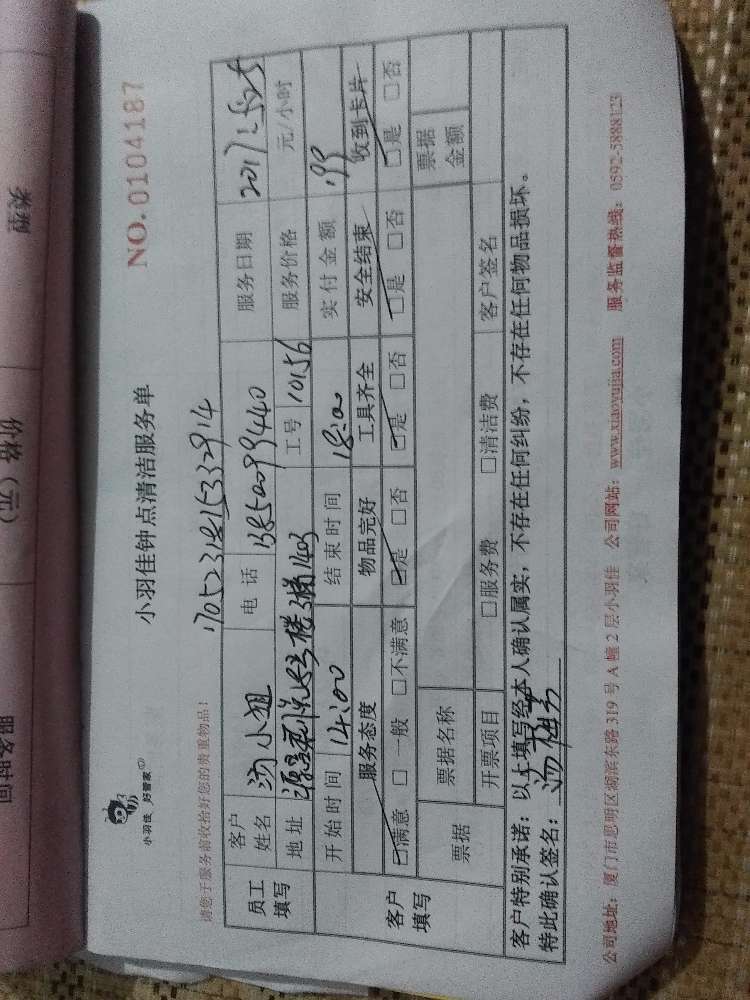 小羽佳 好管家
小羽佳钟点清洁服务单
NO.0104187
请您于服务前收拾好您的贵重物品!
员工填写
客户姓名 汤小姐 电话 13850099440 服务日期
地址 工号 10156 服务价格 元/小时
开始时间 14:00 结束时间 18:00 实付金额 199
客户填写
服务态度 物品完好 工具齐全 安全结束 收到卡片
□满意 □一般 □不满意 □是 □否 □是 □否 □是 □否 □是 □否
票据 票据名称 票据金额
开票项目 □服务费 □清洁费 客户签名
客户特别承诺:以上填写经本人确认属实,不存在任何纠纷,不存在任何物品损坏。
特此确认签名:
公司地址:厦门市思明区湖滨东路 319 号 A 幢 2 层小羽佳 公司网站:www.xiaoyujia.com 服务监督热线:0592-5888123
类型
价格(元)
服务时间